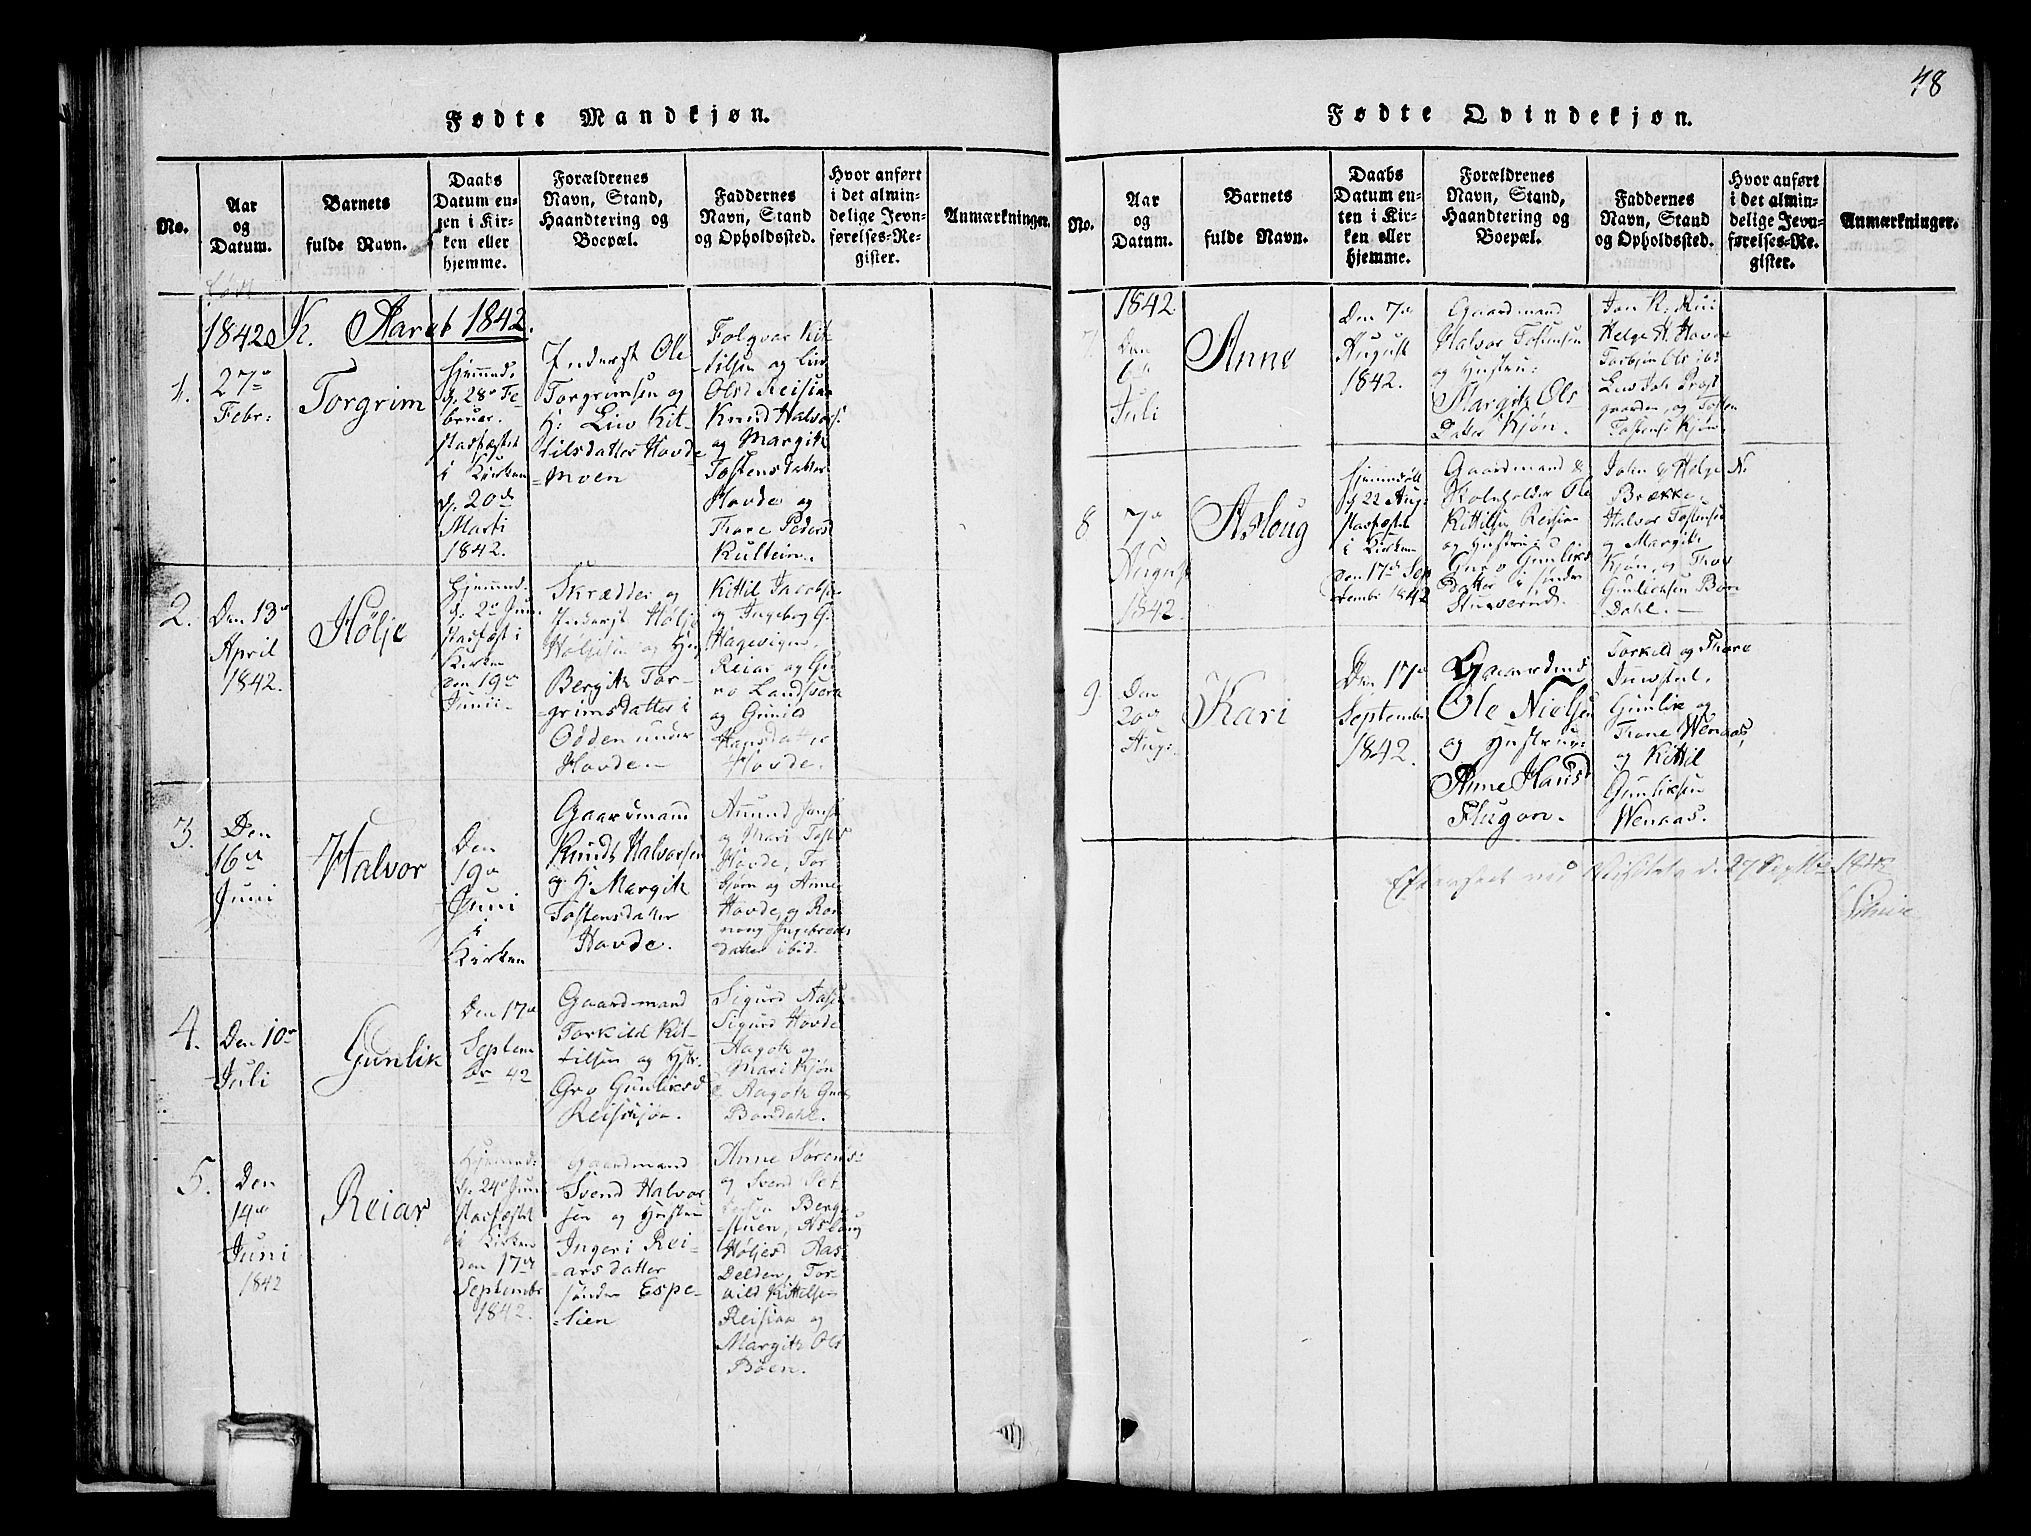 Fødte Mandkjøn.
No.
Aar
og
Datum.
Barnets
fulde Navn.
Daabs
Datum en-
ten i Kir-
ken eller
hjemme.
Forældrenes
Navn, Stand,
Haandtering og
Boepæl.
Faddernes
Navn, Stand
og Opholdssted.
Hvor anført
i det almin-
delige Jevn-
førelses-Re-
gister.
Anmærkninger.
født
1842
Aaret 1842.
1.
27de
Febr:
Torgrim
Hjemmed.
d. 28de Fe-
bruar.
stadfæstet
i Kirken
d. 20de
Marti
1842.
Inderst Ole
Torgrimsen og
H: Liv Kit-
tilsdatter Hovde
=moen
Folqvar Kit-
tilsen og Liv
Olsd Reisiaa
Knud Halvors:
og Margith
Tostensdatter
Hovde og
Thone Peders
Kultein.
2.
Den 13de
April
1842.
Hølje
Hjemmed.
d. 2de Juni
stadfæst i
Kirken
den 19de
Junii
Skrædder og
Inderst Hølje
Høljesen og Hust
Bergith Tor-
=grimsdatter i
Odden under
Hovde.
Kittil Jacobsen
og Ingeborg G.
Hagevigen,
Reiar og Gu-
ro Landsverk
og Gunild
Hansdatter
Hovde.
3.
Den
16de
Juni
Halvor
Den
19de
Juni
i
Kirken
Gaardmand
Knudt Halvorsen
og H. Margith
Tostensdatter
Hovde.
Amund Jons:
og Mari Tostens
Hovde, Tor-
bjørn og Anne
Hovde, og Ron-
noug Ingebrets
datter ibid.
4.
Den 10de
Juli
Gunlik
Den 17de
Septem
br 42
Gaardmand
Torkild Kit-
tilsen og Hstr.
Gro Gunliksd
Reisjøa.
Sigurd Aasen
Sigurd Hovde
Aagoth og
Mari Kjøn
& Aagoth Gun
Bordahl.
5.
Den
14de
Juni
1842
Reiar
Hjemmed:
d. 24de Juni
stadfæstet
i Kirken
den 17de
Septembr
1842.
Gaardmand
Svend Halvor
sen og Hustru
Ingeri Rei-
=arsdatter
søndre Espe-
=lien
Anne Sørens-
og Svend Pet
Berge
stuen, Aslaug
Høljesd Aas-
Delden, Tor-
kild Kittelsen
Reisiaa og
Margith Ols
Bøen.
48
Fødte Qvindekjøn.
No.
Aar
og
Datum.
Barnets
fulde Navn.
Daabs
Datum en-
ten i Kir-
ken eller
hjemme.
Forældrenes
Navn, Stand,
Haandtering og
Boepæl.
Faddernes
Navn, Stand
og Opholdssted.
Hvor anført
i det almin-
delige Jevn-
førelses-Re-
gister.
Anmærkninger.
1842
7.
Den
Juli
Anne
Den 7de
August
1842.
Gaardmand
Halvor Tostensen
og Hustru:
Margith Ols
Datter Kjøn.
Jon K. Rui
Helge H. Hovde
Torbjør Ols ibd
Liv Joh Præst
gaarden, og Tosten
Tostens: Kjøn.
8
7de
August
1842.
Asloug
Hjemmedøbt
d. 22 Aug:
stadfæstet
i Kirken
den 17de Sep
tembr 1842
Gaardmand &
Skoleholder Ole
Kittilsen Reisia
og Hustru:
Guro Gunliks
Datter i søndre
Stuverud.
John & Helge N.
Brække,
Halvor Tostensen
og Margith
Kjøn, og Thor
Gunleiksen Bor
Dahl.
9.
Den
20de
Aug:
Kari
Den 17de
Septembr
1842.
Gaardmd
Ole Nielsen
og Hustrue
Anne Hans
Flugon.
Torkild og Thore
Gunlik og
Thone Wenaas,
og Kittil
Gunliksen
Wenaas.
Efterseet ved Visitats d. 27 Septbr 1842
Schive